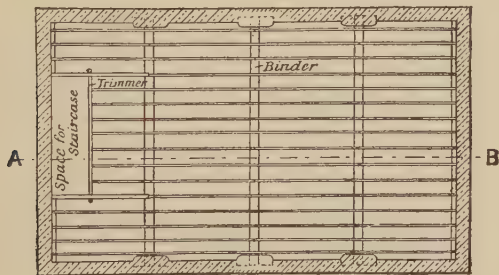 Binder
Trimmer
Space for
Staircase
A
B